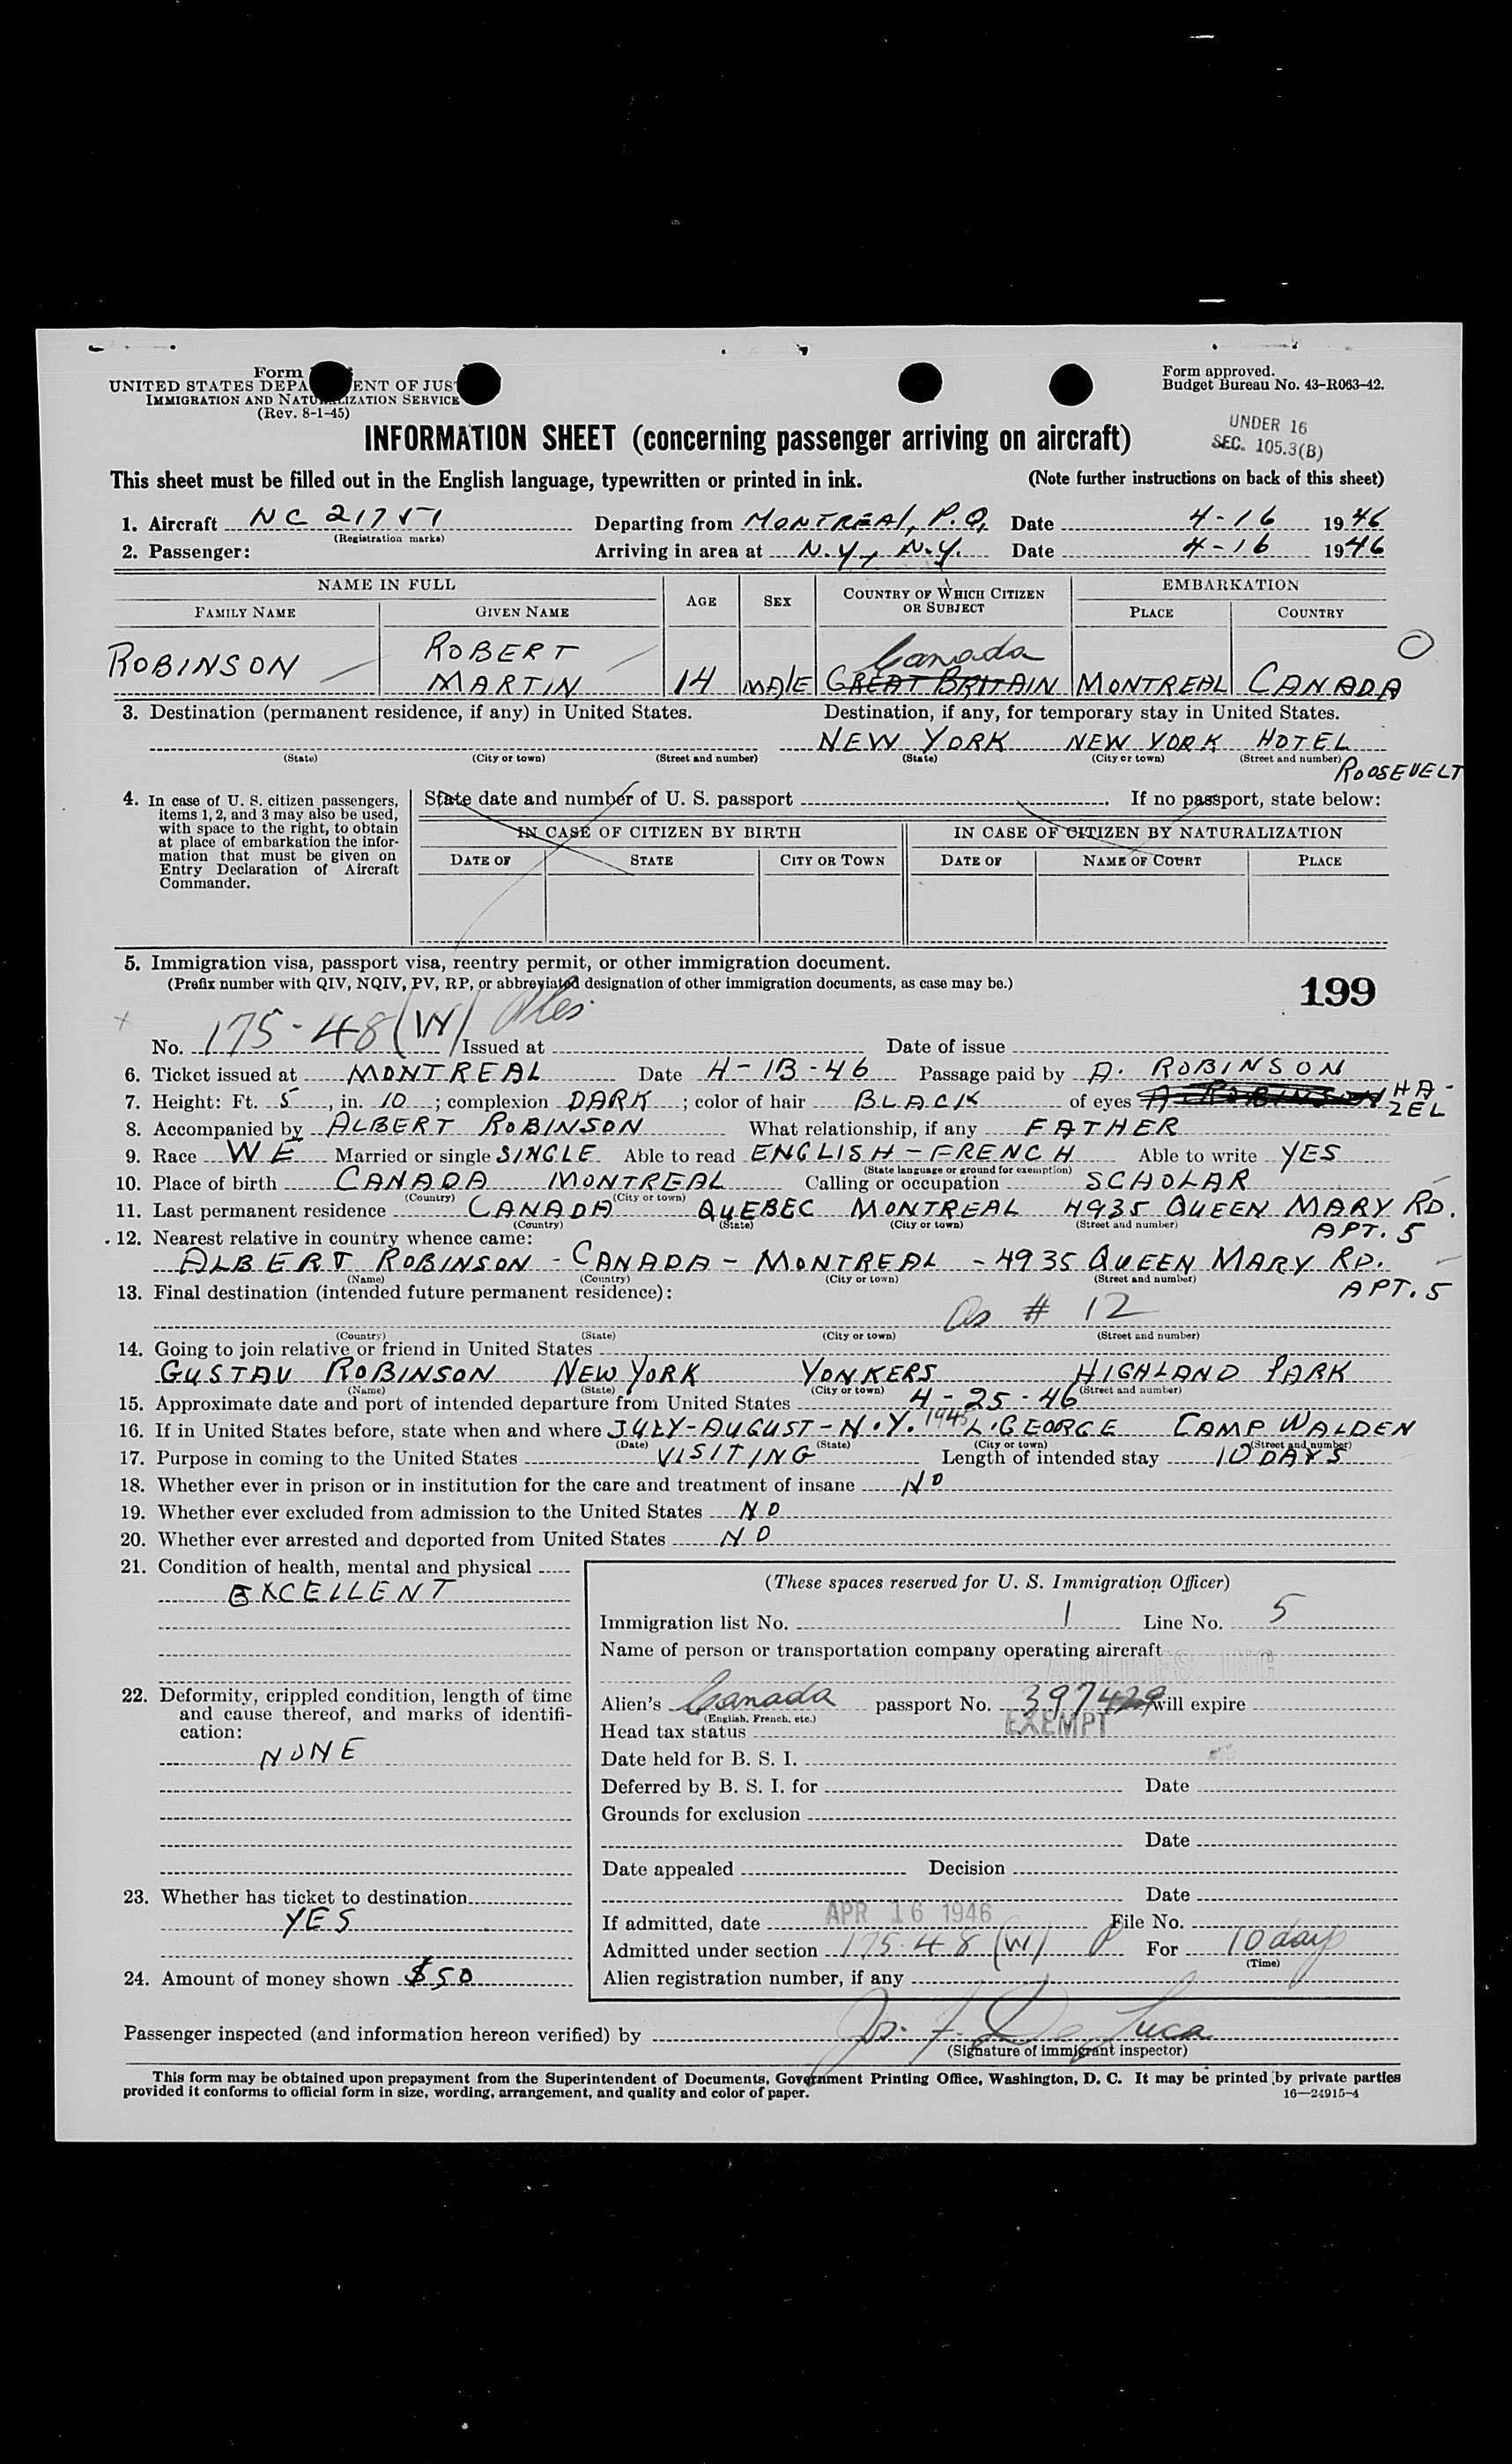 Form
UNITED STATES DEPA ENT OF JUS
IMMIGRATION AND NATU IZATION SERVICE
(Rev. 8-1-45)
Form approved.
Budget Bureau No. 43-R063-42.
UNDER 16
SEC. 105.3(B)
INFORMATION SHEET (concerning passenger arriving on aircraft)
This sheet must be filled out in the English language, typewritten or printed in ink. (Note further instructions on back of this sheet)
1. Aircraft NC 21751 Departing from MONTREAL, P.Q. Date 4-16 1946
(Registration marks)
2. Passenger: Arriving in area at N.Y., N.Y. Date 4-16 1946
NAME IN FULL AGE SEX COUNTRY OF WHICH CITIZEN OR SUBJECT EMBARKATION
FAMILY NAME GIVEN NAME PLACE COUNTRY
ROBINSON ROBERT MARTIN 14 MALE Canada GREAT BRITAIN MONTREAL CANADA
3. Destination (permanent residence, if any) in United States. Destination, if any, for temporary stay in United States.
NEW YORK NEW YORK HOTEL
(State) (City or town) (Street and number) (State) (City or town) (Street and number)
ROOSEVELT
4. In case of U. S. citizen passengers, items 1, 2, and 3 may also be used, with space to the right, to obtain at place of embarkation the information that must be given on Entry Declaration of Aircraft Commander.
State date and number of U. S. passport . If no passport, state below:
IN CASE OF CITIZEN BY BIRTH IN CASE OF CITIZEN BY NATURALIZATION
DATE OF STATE CITY OR TOWN DATE OF NAME OF COURT PLACE
5. Immigration visa, passport visa, reentry permit, or other immigration document.
(Prefix number with QIV, NQIV, PV, RP, or abbreviated designation of other immigration documents, as case may be.)
199
No. 175-48(W) Issued at Date of issue
6. Ticket issued at MONTREAL Date 4-13-46 Passage paid by A. ROBINSON
7. Height: Ft. 5, in. 10; complexion DARK; color of hair BLACK of eyes A. ROBINSON HA-
ZEL
8. Accompanied by ALBERT ROBINSON What relationship, if any FATHER
9. Race WE Married or single SINGLE Able to read ENGLISH-FRENCH Able to write YES
(State language or ground for exemption)
10. Place of birth CANADA MONTREAL Calling or occupation SCHOLAR
(Country) (City or town)
11. Last permanent residence CANADA QUEBEC MONTREAL 4935 QUEEN MARY RD.
(Country) (State) (City or town) (Street and number)
APT. 5
12. Nearest relative in country whence came:
ALBERT ROBINSON - CANADA - MONTREAL - 4935 QUEEN MARY RD.
(Name) (Country) (City or town) (Street and number)
APT. 5
13. Final destination (intended future permanent residence):
As # 12
(Country) (State) (City or town) (Street and number)
14. Going to join relative or friend in United States
GUSTAV ROBINSON NEW YORK YONKERS HIGHLAND PARK
(Name) (State) (City or town) (Street and number)
15. Approximate date and port of intended departure from United States 4-25-46
16. If in United States before, state when and where JULY-AUGUST-N.Y. 1945 L.GEORGE CAMP WALDEN
(Date) (State) (City or town) (Street and number)
17. Purpose in coming to the United States VISITING Length of intended stay 10 DAYS
18. Whether ever in prison or in institution for the care and treatment of insane NO
19. Whether ever excluded from admission to the United States NO
20. Whether ever arrested and deported from United States NO
21. Condition of health, mental and physical
EXCELLENT
22. Deformity, crippled condition, length of time and cause thereof, and marks of identification:
NONE
23. Whether has ticket to destination
YES
24. Amount of money shown $50
(These spaces reserved for U. S. Immigration Officer)
Immigration list No. 1 Line No. 5
Name of person or transportation company operating aircraft
Alien's Canada passport No. 397429 will expire
(English, French, etc.)
Head tax status EXEMPT
Date held for B. S. I.
Deferred by B. S. I. for Date
Grounds for exclusion
Date
Date appealed Decision
Date
If admitted, date APR 16 1946 File No.
Admitted under section 175.48 (W) P For 10 days
(Time)
Alien registration number, if any
Passenger inspected (and information hereon verified) by Jos. F. De Luca
(Signature of immigrant inspector)
This form may be obtained upon prepayment from the Superintendent of Documents, Government Printing Office, Washington, D. C. It may be printed by private parties
provided it conforms to official form in size, wording, arrangement, and quality and color of paper. 16—24915-4